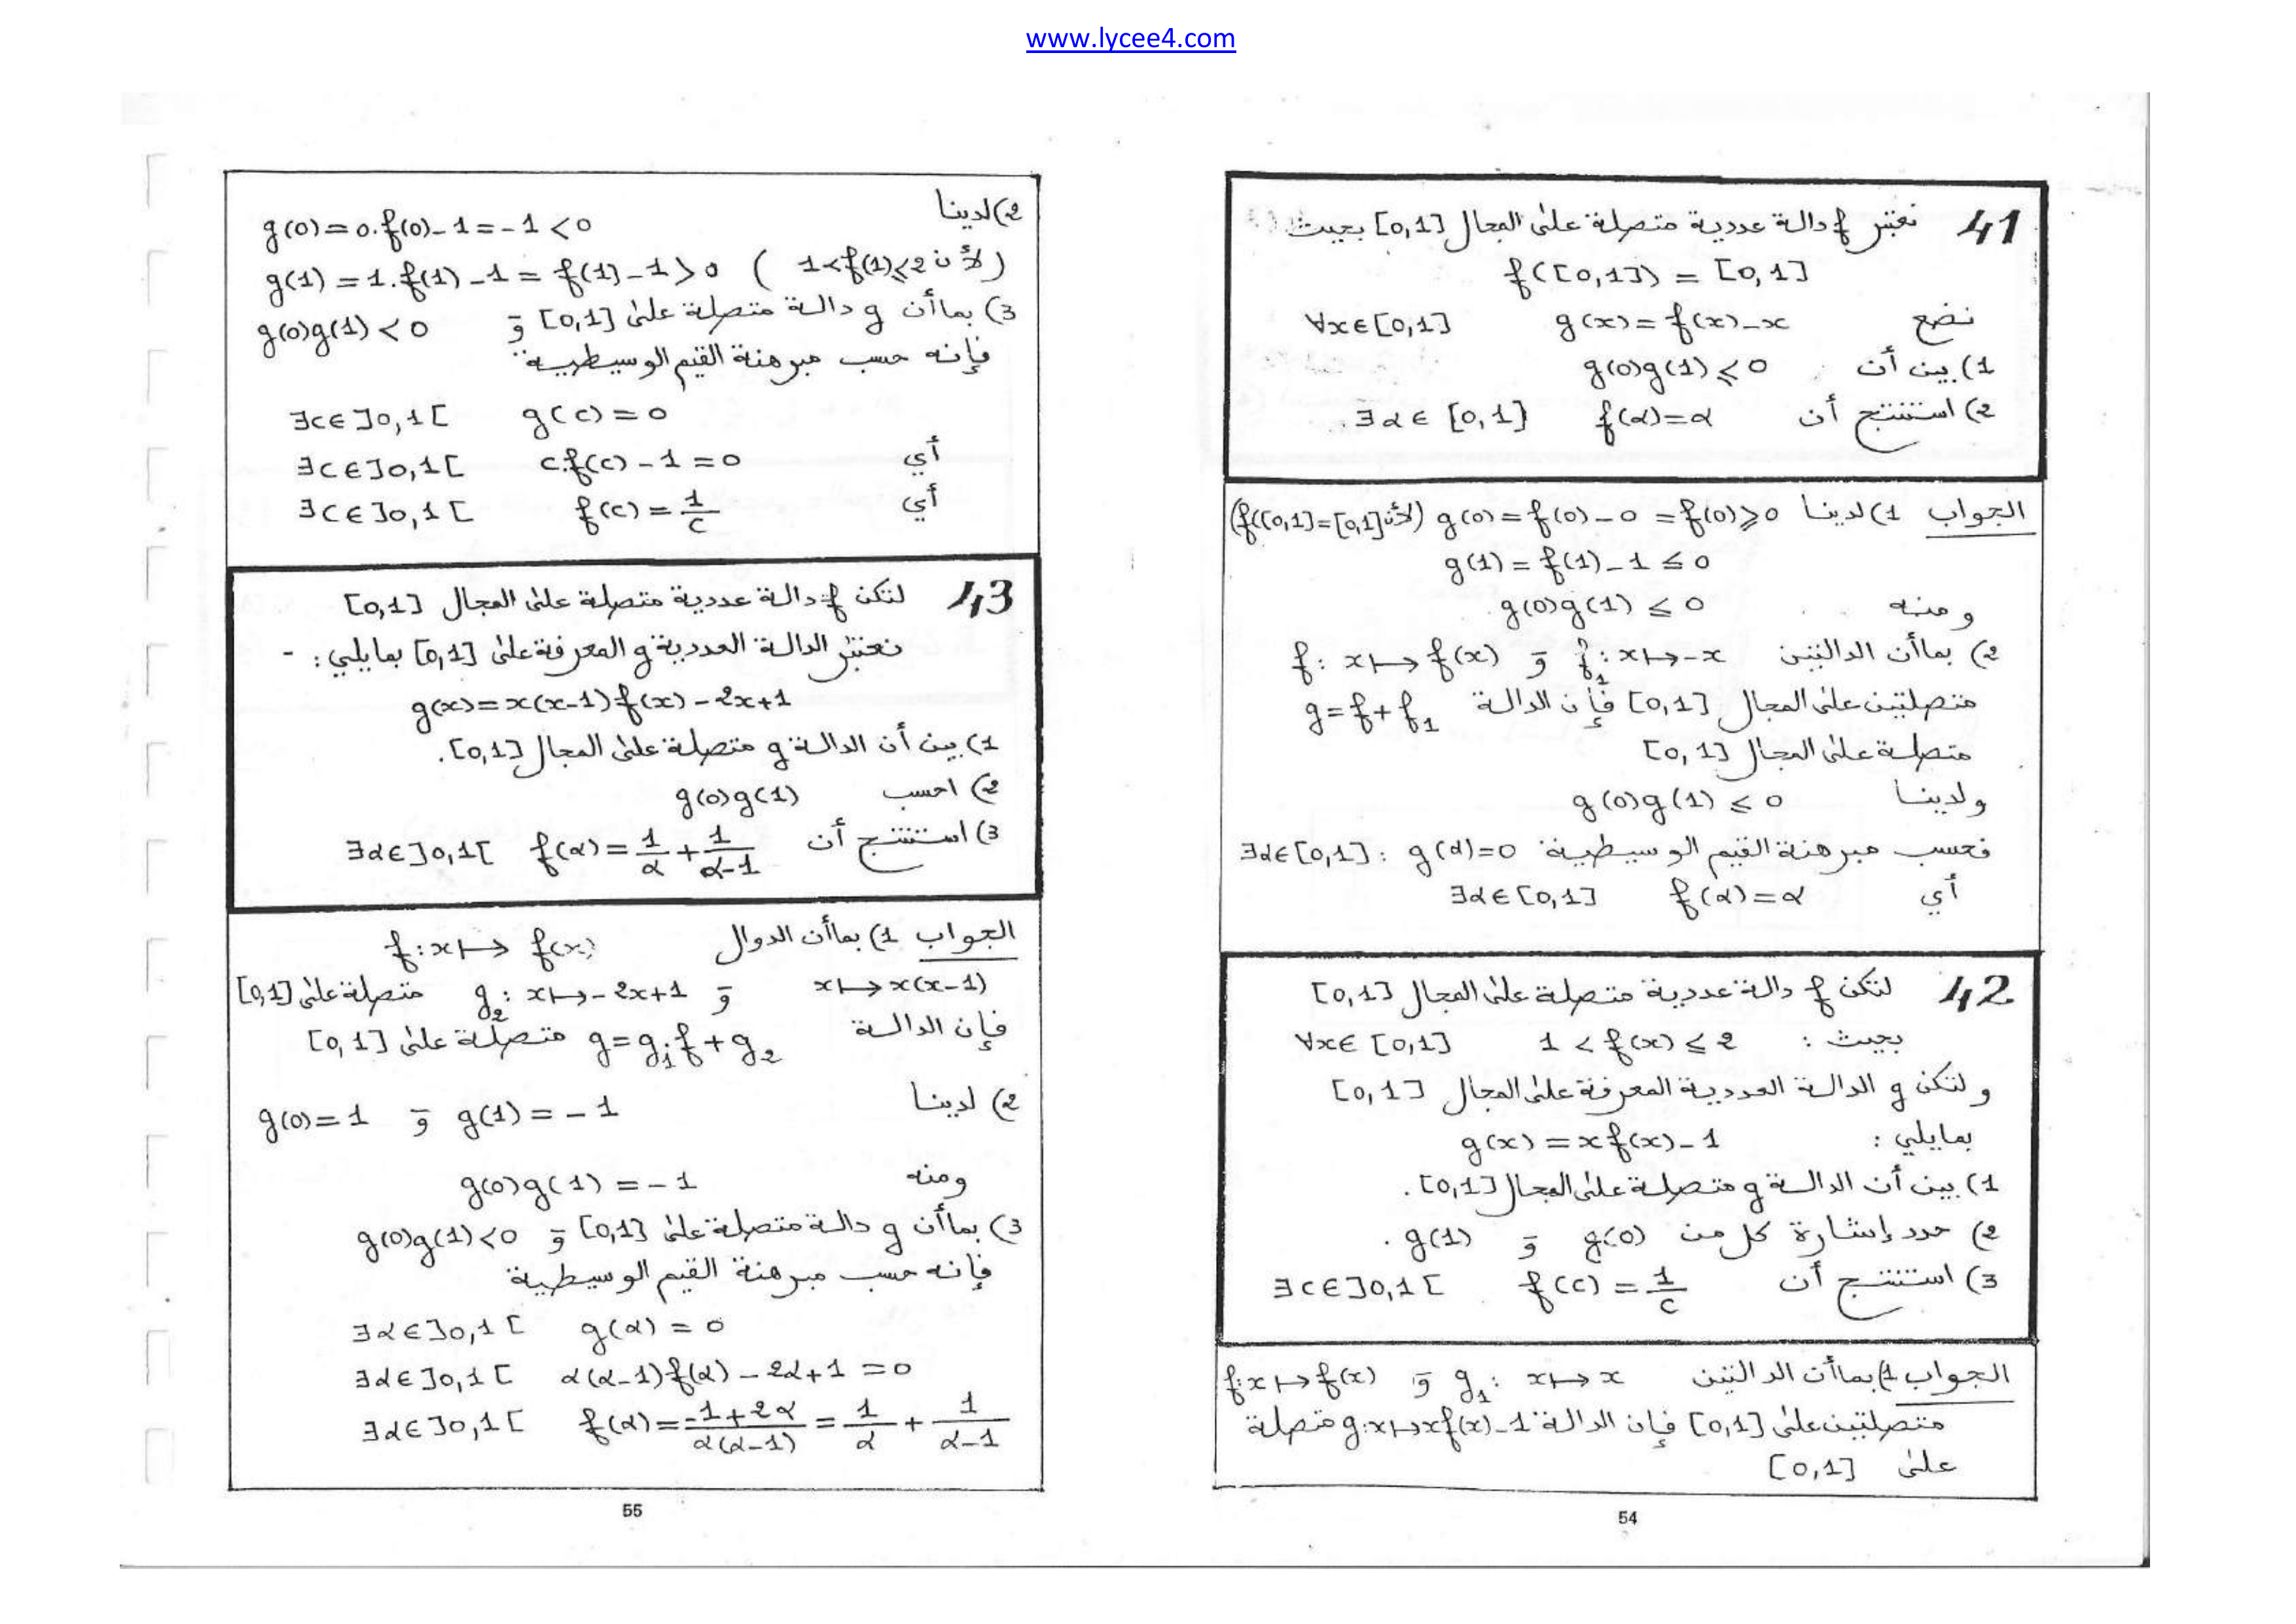 www.lycee4.com
41 نعتبر f دالة عددية متصلة على المجال [0,1] بحيث
f([0,1]) = [0,1]
نضع g(x) = f(x) - x ∀x∈[0,1]
1) بين أن g(0)g(1) ⩽ 0
2) استنتج أن f(α)=α ∃α∈[0,1]
الجواب 1) لدينا g(0) = f(0) - 0 = f(0) ⩾ 0 (لأن f([0,1]=[0,1])
g(1) = f(1) - 1 ≤ 0
ومنه g(0)g(1) ≤ 0
2) بما أن الدالتين f₁: x ↦ -x و f: x ↦ f(x)
متصلتين على المجال [0,1] فإن الدالة g=f+f₁
متصلة على المجال [0,1]
ولدينا g(0)g(1) ≤ 0
فحسب مبرهنة القيم الوسيطية: ∃α∈[0,1] : g(α)=0
أي f(α)=α ∃α∈[0,1]
42 لتكن f دالة عددية متصلة على المجال [0,1]
بحيث : 1 < f(x) ≤ 2 ∀x∈[0,1]
ولتكن g الدالة العددية المعرفة على المجال [0,1]
بمايلي : g(x) = x f(x) - 1
1) بين أن الدالة g متصلة على المجال [0,1].
2) حدد إشارة كل من g(0) و g(1) .
3) استنتج أن f(c) = 1/c ∃c∈]0,1[
الجواب 1) بما أن الدالتين g₁: x ↦ x و f: x ↦ f(x)
متصلتين على [0,1] فإن الدالة g: x ↦ xf(x) - 1 متصلة
على [0,1]
54
2) لدينا g(0) = 0.f(0) - 1 = -1 < 0
g(1) = 1.f(1) - 1 = f(1) - 1 > 0 (لأن 1<f(1)⩽2)
3) بما أن g دالة متصلة على [0,1] و g(0)g(1) < 0
فإنه حسب مبرهنة القيم الوسيطية:
∃c∈]0,1[ g(c) = 0
أي ∃c∈]0,1[ c.f(c) - 1 = 0
أي ∃c∈]0,1[ f(c) = 1/c
43 لتكن f دالة عددية متصلة على المجال [0,1]
نعتبر الدالة العددية g المعرفة على [0,1] بمايلي : -
g(x) = x(x-1)f(x) - 2x+1
1) بين أن الدالة g متصلة على المجال [0,1].
2) احسب g(0)g(1)
3) استنتج أن f(α) = 1/α + 1/(α-1) ∃α∈]0,1[
الجواب 1) بما أن الدوال f: x ↦ f(x)
x ↦ x(x-1) و g₂: x ↦ -2x+1 متصلة على [0,1]
فإن الدالة g=g₁.f+g₂ متصلة على [0,1]
2) لدينا g(1) = -1 و g(0) = 1
ومنه g(0)g(1) = -1
3) بما أن g دالة متصلة على [0,1] و g(0)g(1)<0
فإنه حسب مبرهنة القيم الوسيطية
∃α∈]0,1[ g(α) = 0
∃α∈]0,1[ α(α-1)f(α) - 2α+1 = 0
∃α∈]0,1[ f(α) = (-1+2α)/(α(α-1)) = 1/α + 1/(α-1)
55